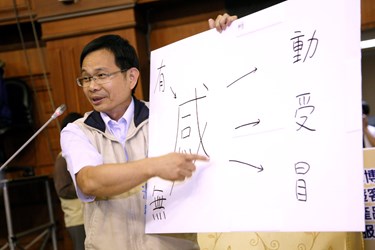 有
無
感
動
受
冒